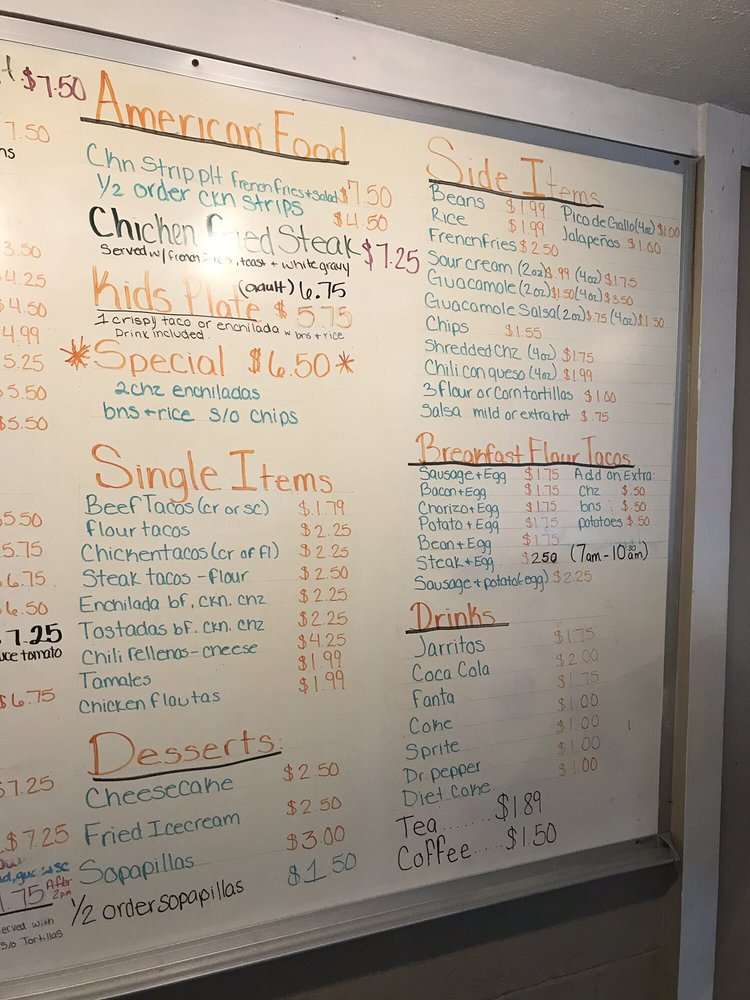 $7.50
7.50
ns
3.50
4.25
$4.50
4.99
5.25
$5.50
$5.50
5.50
5.75
6.75
6.50
7.25
uce tomato
$6.75
$7.25
$7.25
1.75 After 2pm
erved with
s/o Tortillas
American Food
Ckn Strip plt french fries + salad $7.50
1/2 order ckn strips $4.50
Chicken fried Steak $7.25
Served w/french fries, toast + white gravy
(adult) 6.75
Kids Plate $5.75
1 crispy taco or enchilada w bns + rice
Drink included
*Special $6.50*
2 chz enchiladas
bns + rice s/o chips
Single Items
Beef Tacos (cr or sc) $1.79
flour tacos $2.25
Chicken tacos (cr of fl) $2.25
Steak tacos - flour $2.50
Enchilada bf. ckn. chz $2.25
Tostadas bf. ckn. chz $2.25
Chili rellenos - cheese $4.25
Tamales $1.99
Chicken flautas $1.99
Desserts
Cheesecake $2.50
Fried Icecream $2.50
Sopapillas $3.00
1/2 order sopapillas $1.50
Side Items
Beans $1.99 Pico de Gallo (4oz) $1.00
Rice $1.99 Jalapeños $1.00
French fries $2.50
Sour cream (2oz) $.99 (4oz) $1.75
Guacamole (2oz) $1.50 (4oz) $3.50
Guacamole Salsa (2oz) $.75 (4oz) $1.50
Chips $1.55
Shredded chz (4oz) $1.75
Chili con queso (4oz) $1.99
3 flour or Corn tortillas $1.00
Salsa mild or extra hot $.75
Breakfast Flour Tacos
Sausage + Egg $1.75 Add on Extra
Bacon + Egg $1.75 chz $.50
Chorizo + Egg $1.75 bns $.50
Potato + Egg $1.75 potatoes $.50
Bean + Egg $1.75
Steak + Egg $2.50 (7am - 10:30am)
Sausage + potato (-egg) $2.25
Drinks
Jarritos $1.75
Coca Cola $2.00
Fanta $1.75
Coke $1.00
Sprite $1.00
Dr. pepper $1.00
Diet Coke $1.00
Tea........$1.89
Coffee.....$1.50